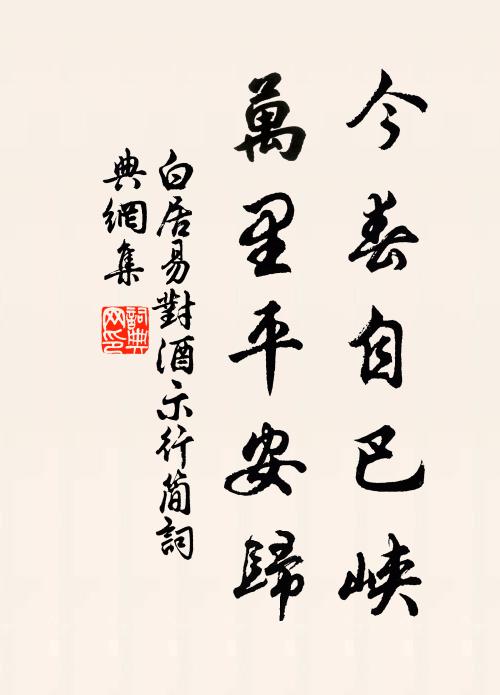 今春自巴峽
萬里平安歸
白居易對酒示行簡詞
典網集
詞典网印